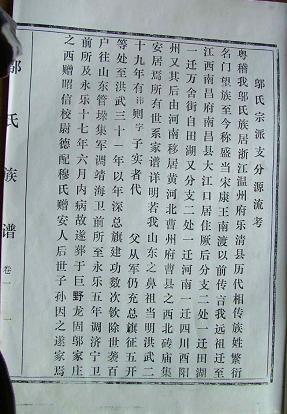 邬氏宗派支分源流考
粤稽我邬氏族居浙江温州府乐清县历代相传族姓繁衍
名门望族至今称盛当宋康王南渡以前传言我远祖迁至
江西南昌府南昌县大江口居住厥后分支二处一迁田湖
一迁万舍街自田湖又分支二处一迁河南一迁四川酉阳
州又其后由河南移居黄河北曹州府曹县之西北砖庙集
安居焉所有世系家谱详明若我山东之鼻祖当明洪武二
十九年有讳则字子实者代父从军仍充总旗征五开
等处至洪武三十一年以年深总旗建功数次钦除世袭百
户往山东管操集军调靖海卫前所至永乐五年调济宁卫
前所及永乐十七年六月内病故遂葬于巨野龙固邬家庄
之西赠昭信校尉德配穆氏赠安人后世子孙因之遂家焉
邬氏族谱
卷一